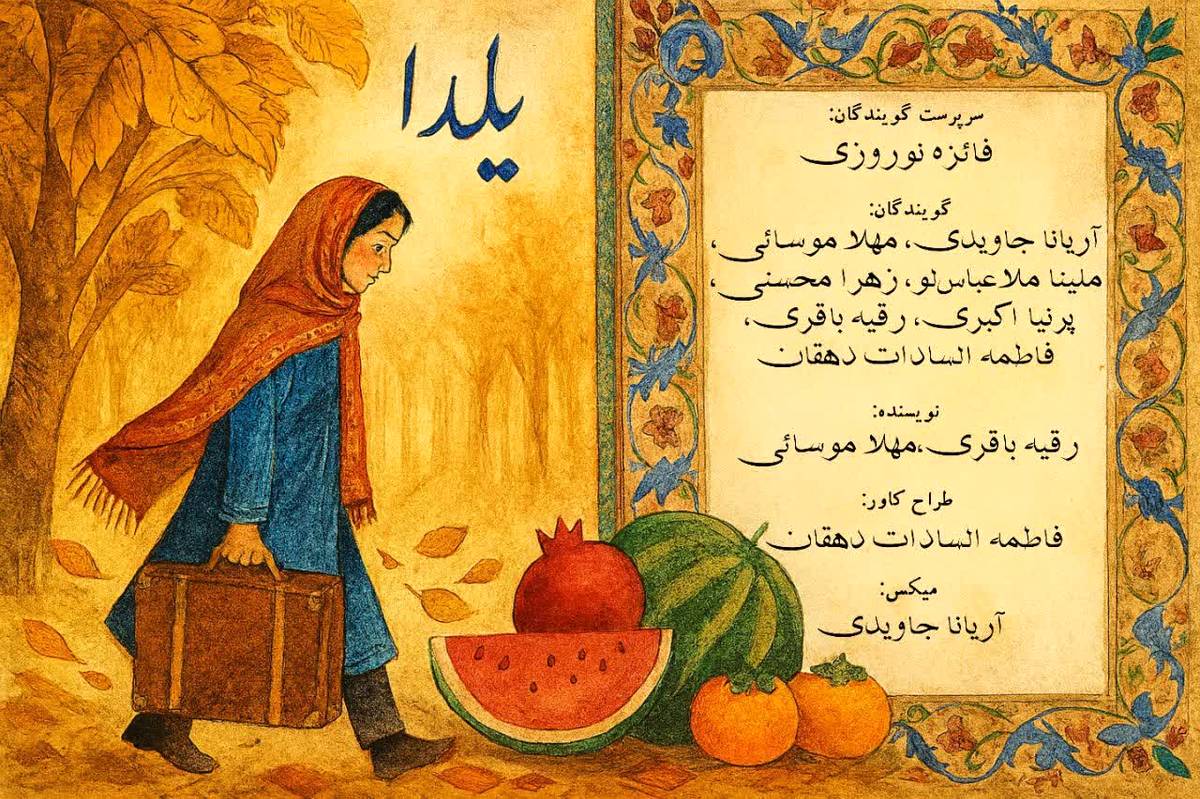 یلدا
سرپرست گویندگان:
فائزه نوروزی
گویندگان:
آریانا جاویدی، مهلا موسائی،
ملینا ملاعباس‌لو، زهرا محسنی،
پرنیا اکبری، رقیه باقری،
فاطمه السادات دهقان
نویسنده:
رقیه باقری،مهلا موسائی
طراح کاور:
فاطمه السادات دهقان
میکس:
آریانا جاویدی